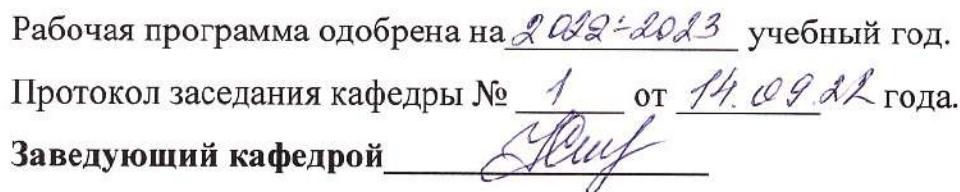 Рабочая программа одобрена на 2022-2023 учебный год.
Протокол заседания кафедры № 1 от 14.09.22 года.
Заведующий кафедрой